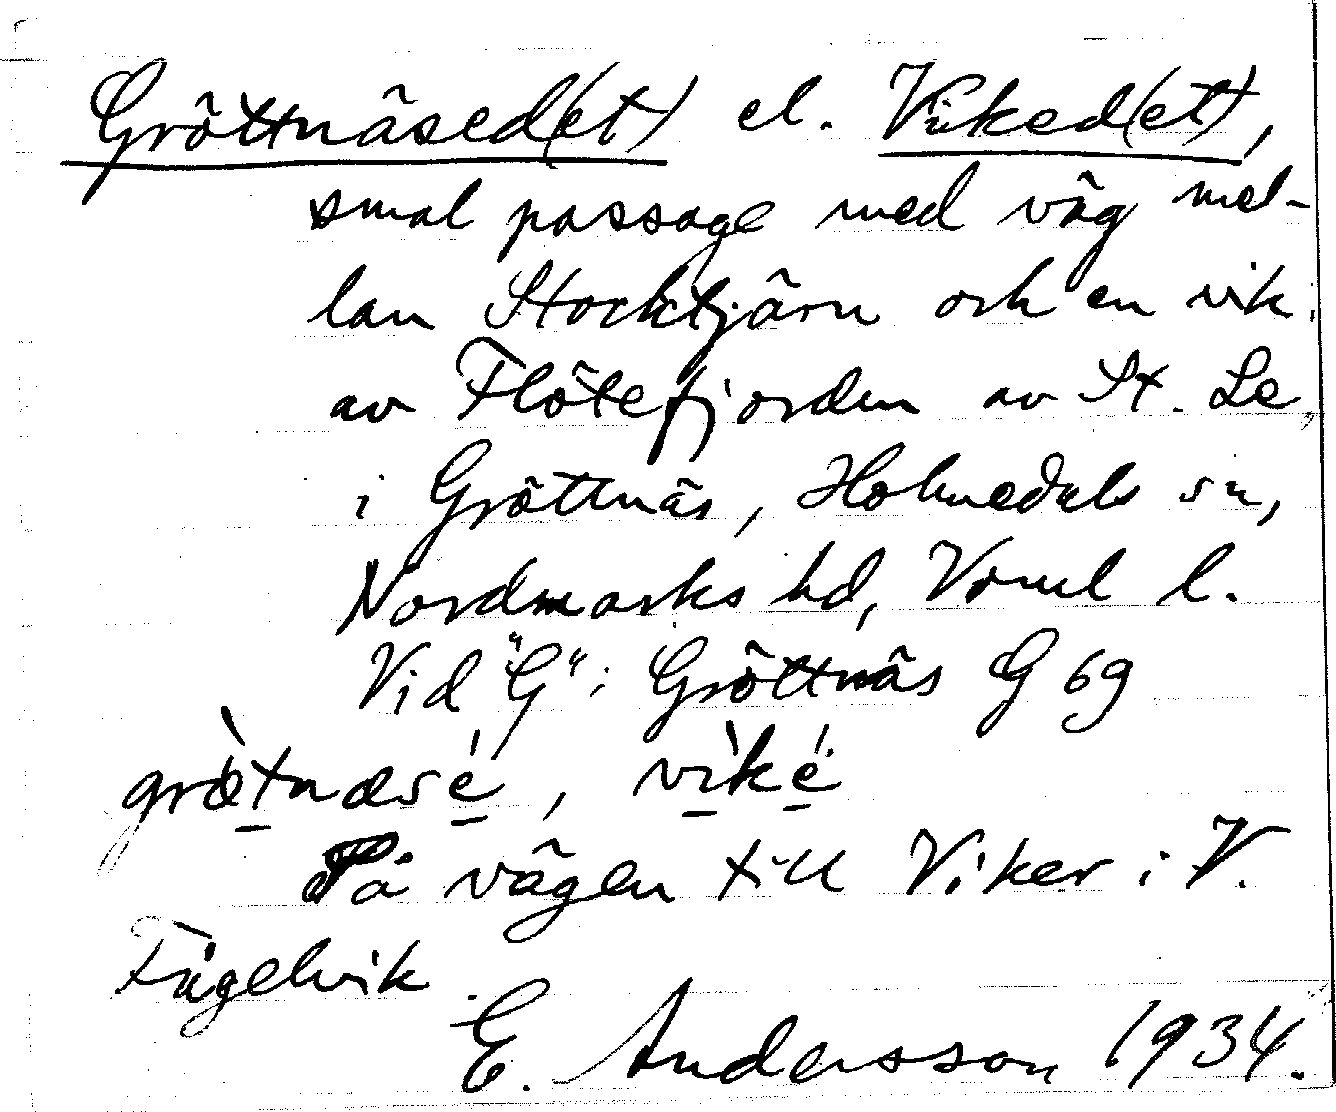 Gröttnäsed(et) el. Viked(et),
smal passage med väg mel-
lan Stocktjärn och en vik
av Flötefjorden av St. Le
i Gröttnäs, Holmedals sn,
Nordmarks hd, Vrml l.
Vid "G" i Gröttnäs G 69
grœ̀tnæsé, vìké
På vägen till Viker i V.
Fågelvik.
E. Andersson 1934.